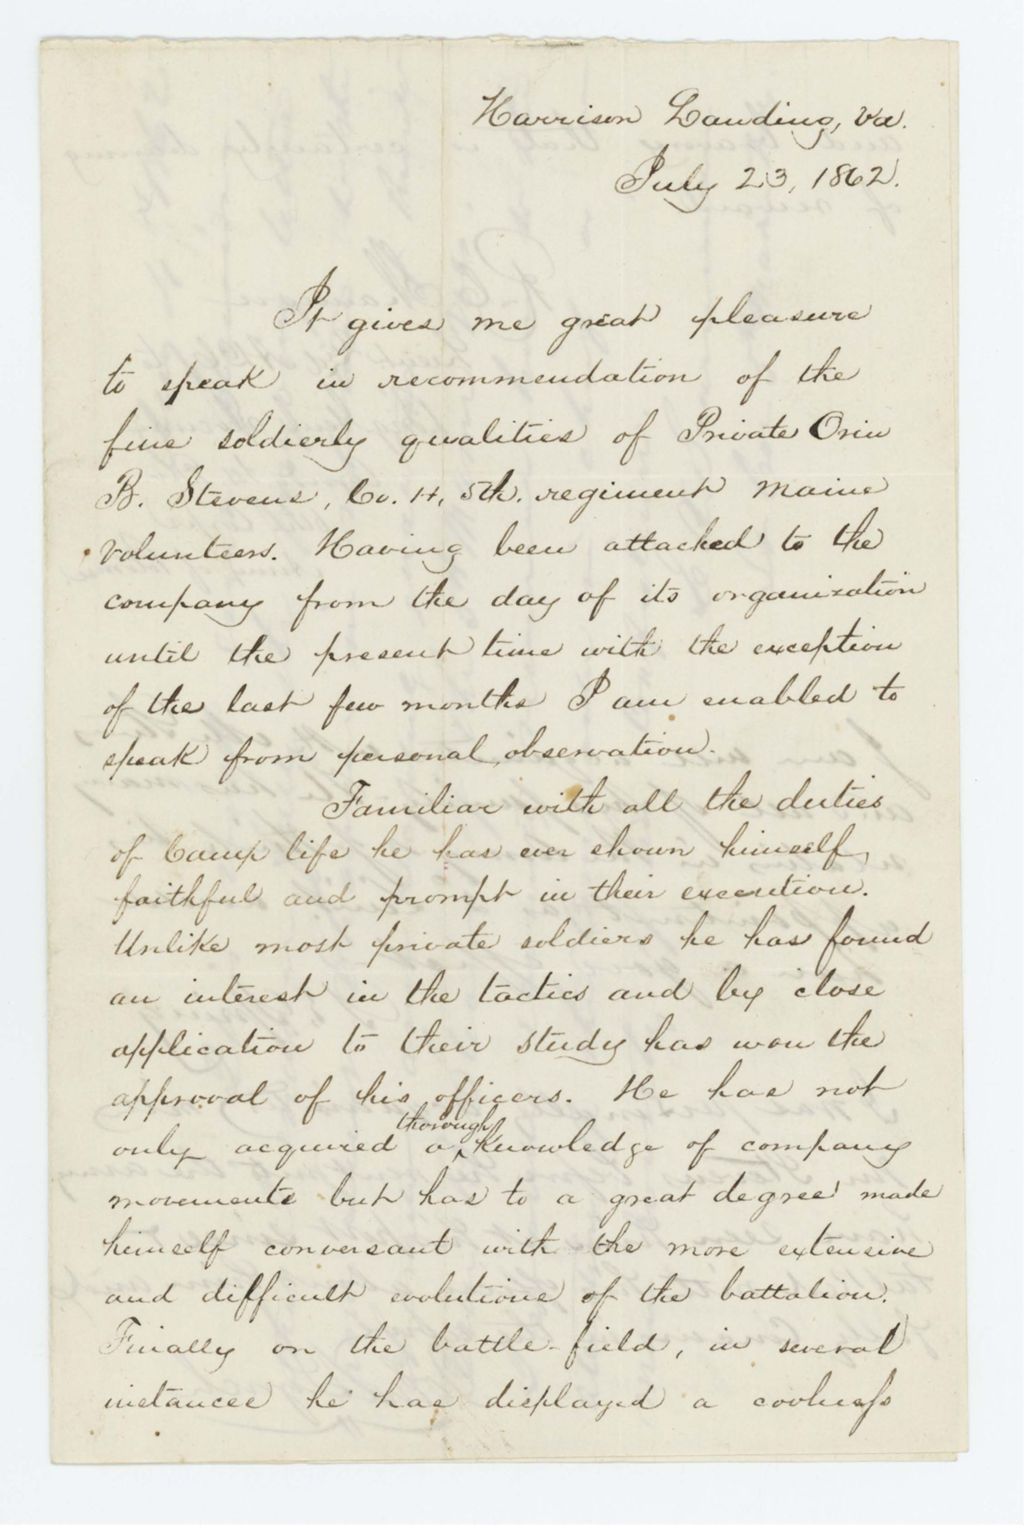 Harrison Landing, Va.
July 23, 1862.
It gives me great pleasure
to speak in recommendation of the
fine soldierly qualities of Private Orin
B. Stevens, Co. H, 5th. regiment Maine
Volunteers. Having been attached to the
company from the day of its organization
until the present time with the exception
of the last few months I am enabled to
speak from personal observation.
Familiar with all the duties
of Camp life he has ever shown himself,
faithful and prompt in their execution.
Unlike most private soldiers he has found
an interest in the tactics and by close
application to their study has won the
approval of his officers. He has not
only acquired a thorough knowledge of company
movements but has to a great degree made
himself conversant with the more extensive
and difficult evolutions of the battalion.
Finally on the battle-field, in several
instances he has displayed a coolness